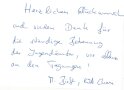 Herzlichen Glückwunsch
und vielen Dank für
die ständige Betreuung
der Jugendlichen, vor allem
an den Tagungen!